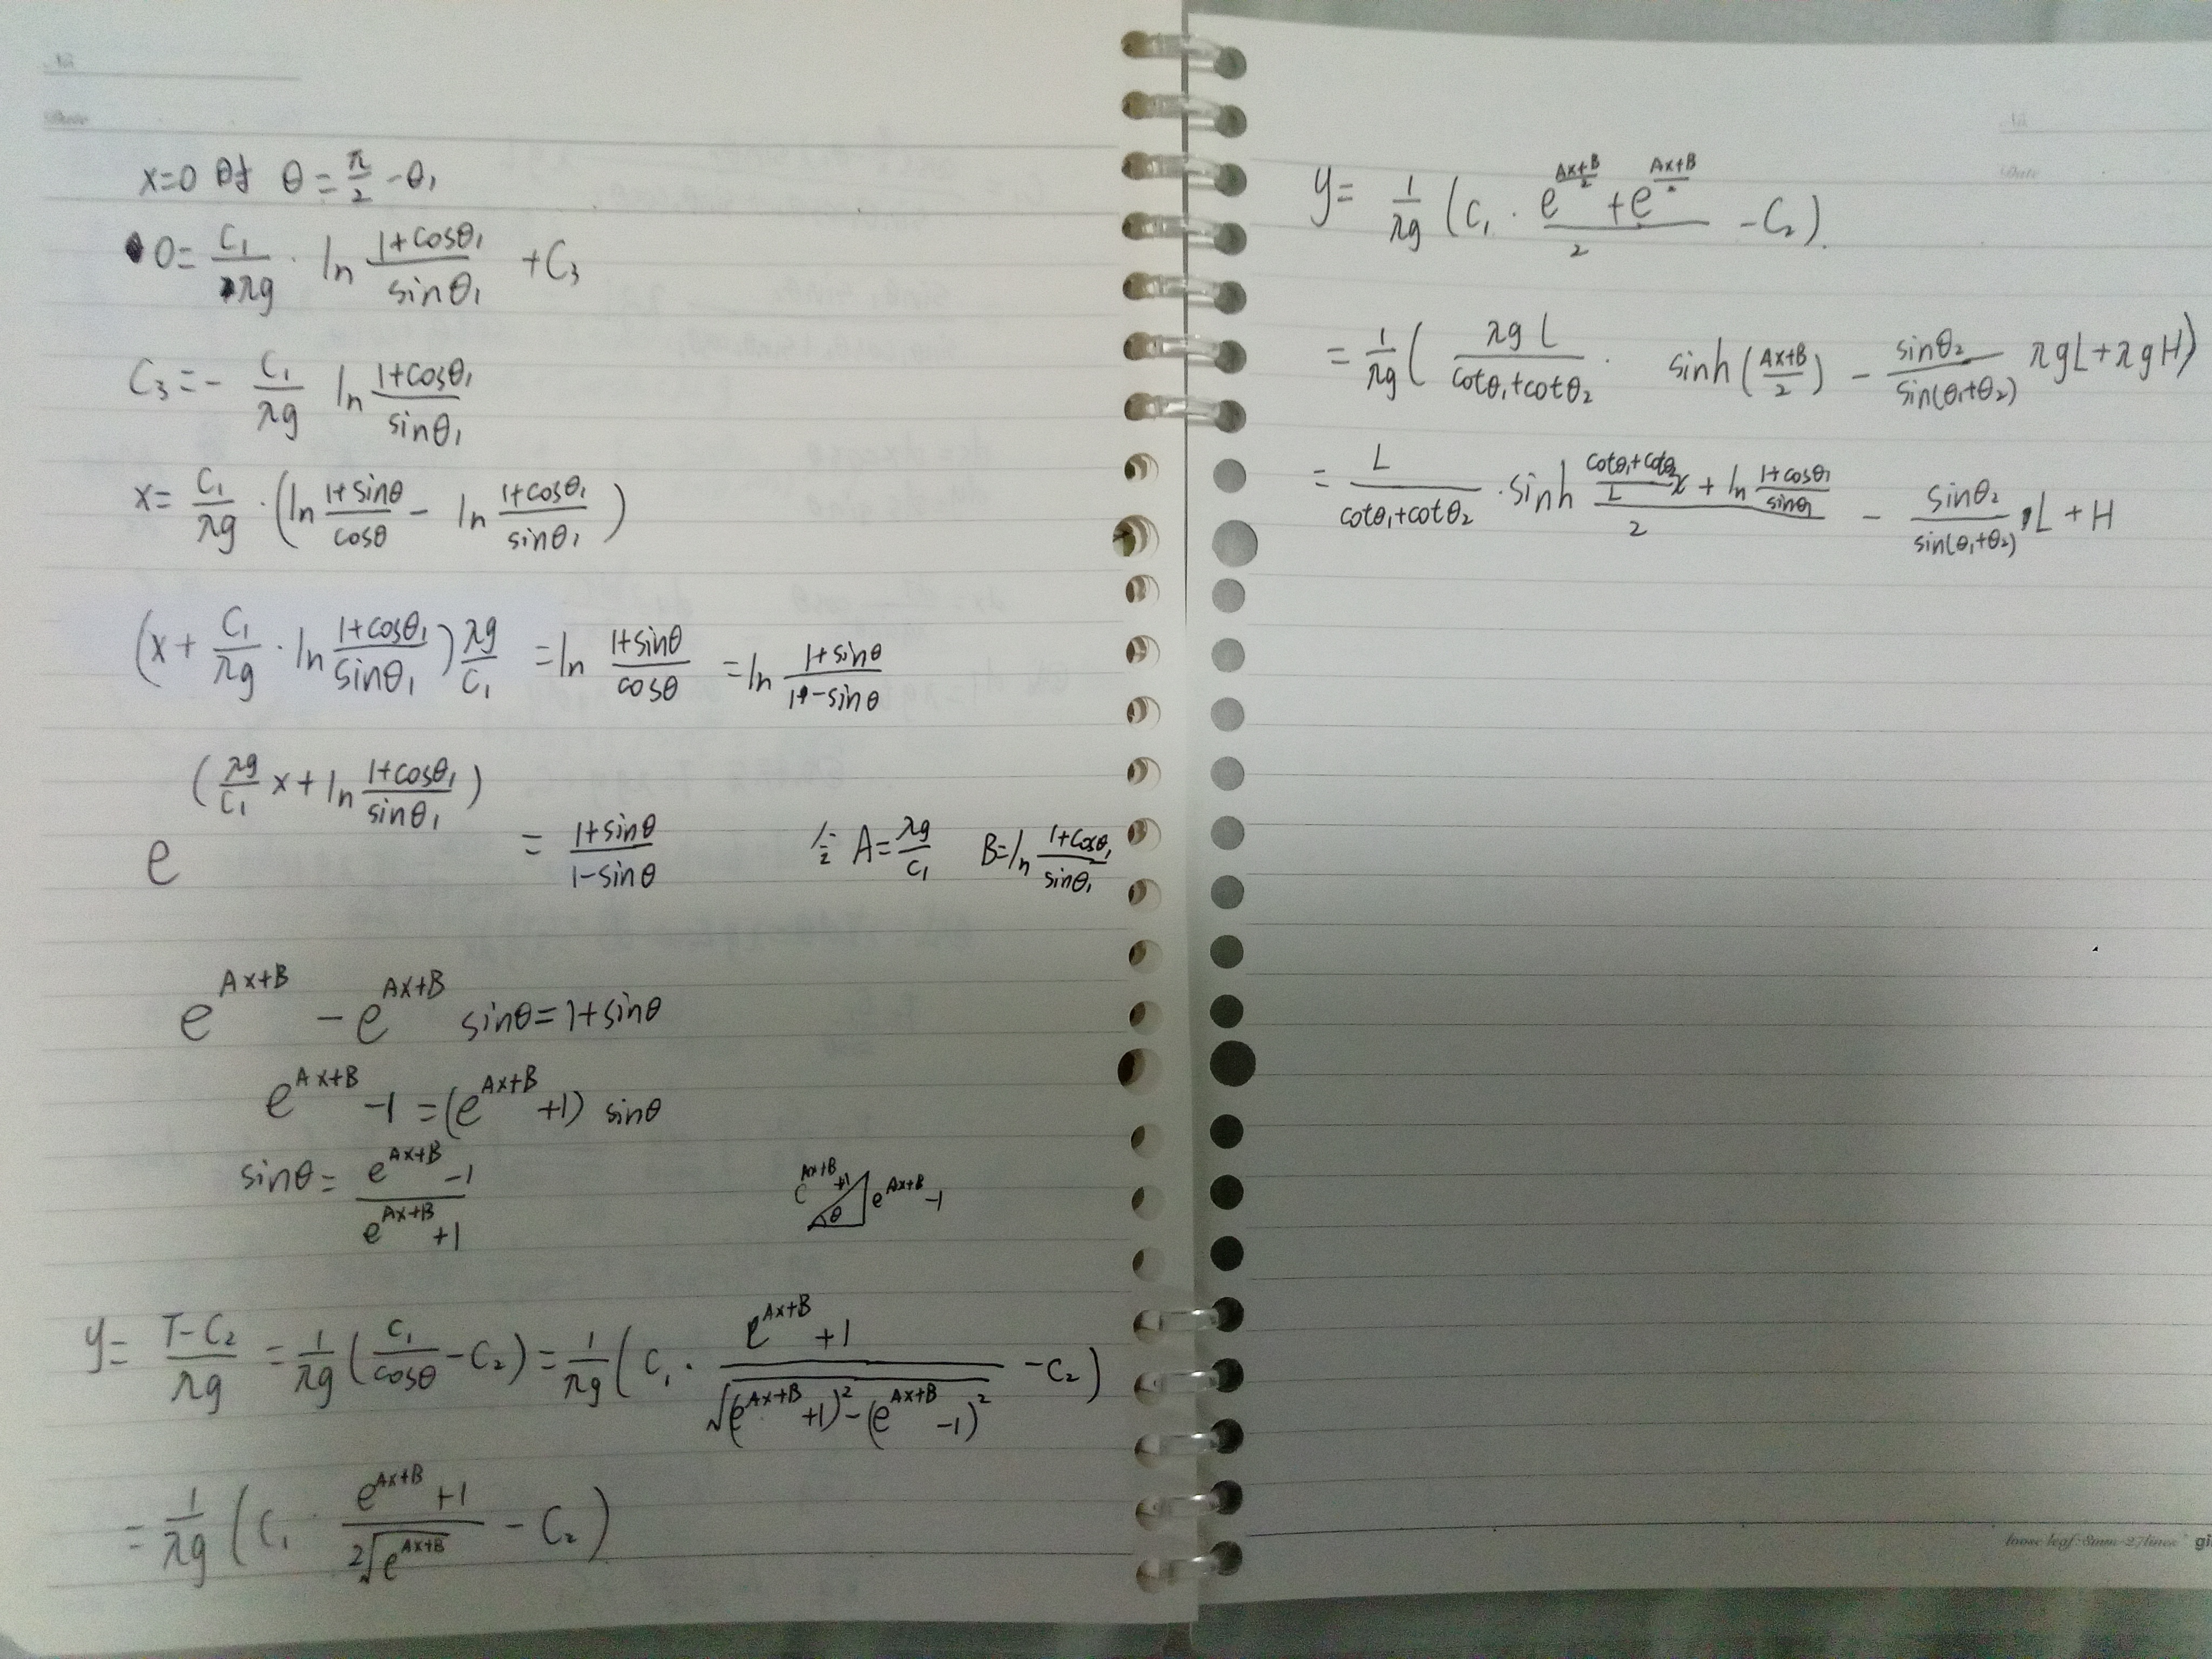 No.
Date
x=0 时 θ = π/2 - θ₁
0 = C₁/λg · ln (1+cosθ₁)/sinθ₁ + C₃
C₃ = - C₁/λg ln (1+cosθ₁)/sinθ₁
x = C₁/λg · (ln (1+sinθ)/cosθ - ln (1+cosθ₁)/sinθ₁)
(x + C₁/λg · ln (1+cosθ₁)/sinθ₁) λg/C₁ = ln (1+sinθ)/cosθ = ln (1+sinθ)/(1-sinθ)
e^(λg/C₁ x + ln (1+cosθ₁)/sinθ₁) = (1+sinθ)/(1-sinθ) 令 A = λg/C₁ B = ln (1+cosθ₁)/sinθ₁
e^(Ax+B) - e^(Ax+B) sinθ = 1+sinθ
e^(Ax+B) - 1 = (e^(Ax+B) + 1) sinθ
sinθ = (e^(Ax+B) - 1)/(e^(Ax+B) + 1)
e^(Ax+B) + 1 θ e^(Ax+B) - 1
y = (T-C₂)/λg = 1/λg (C₁/cosθ - C₂) = 1/λg (C₁ · (e^(Ax+B) + 1)/√((e^(Ax+B) + 1)² - (e^(Ax+B) - 1)²) - C₂)
= 1/λg (C₁ · (e^(Ax+B) + 1)/(2√(e^(Ax+B))) - C₂)
No.
Date
y = 1/λg (C₁ · (e^((Ax+B)/2) + e^((Ax+B)/2))/2 - C₂).
= 1/λg (λgL/(cotθ₁+cotθ₂) · sinh((Ax+B)/2) - sinθ₂/sin(θ₁+θ₂) λgL + λgH)
= L/(cotθ₁+cotθ₂) · sinh ((cotθ₁+cotθ₂)/L x + ln (1+cosθ₁)/sinθ₁)/2 - sinθ₂/sin(θ₁+θ₂) L + H
loose leaf·8mm·27lines